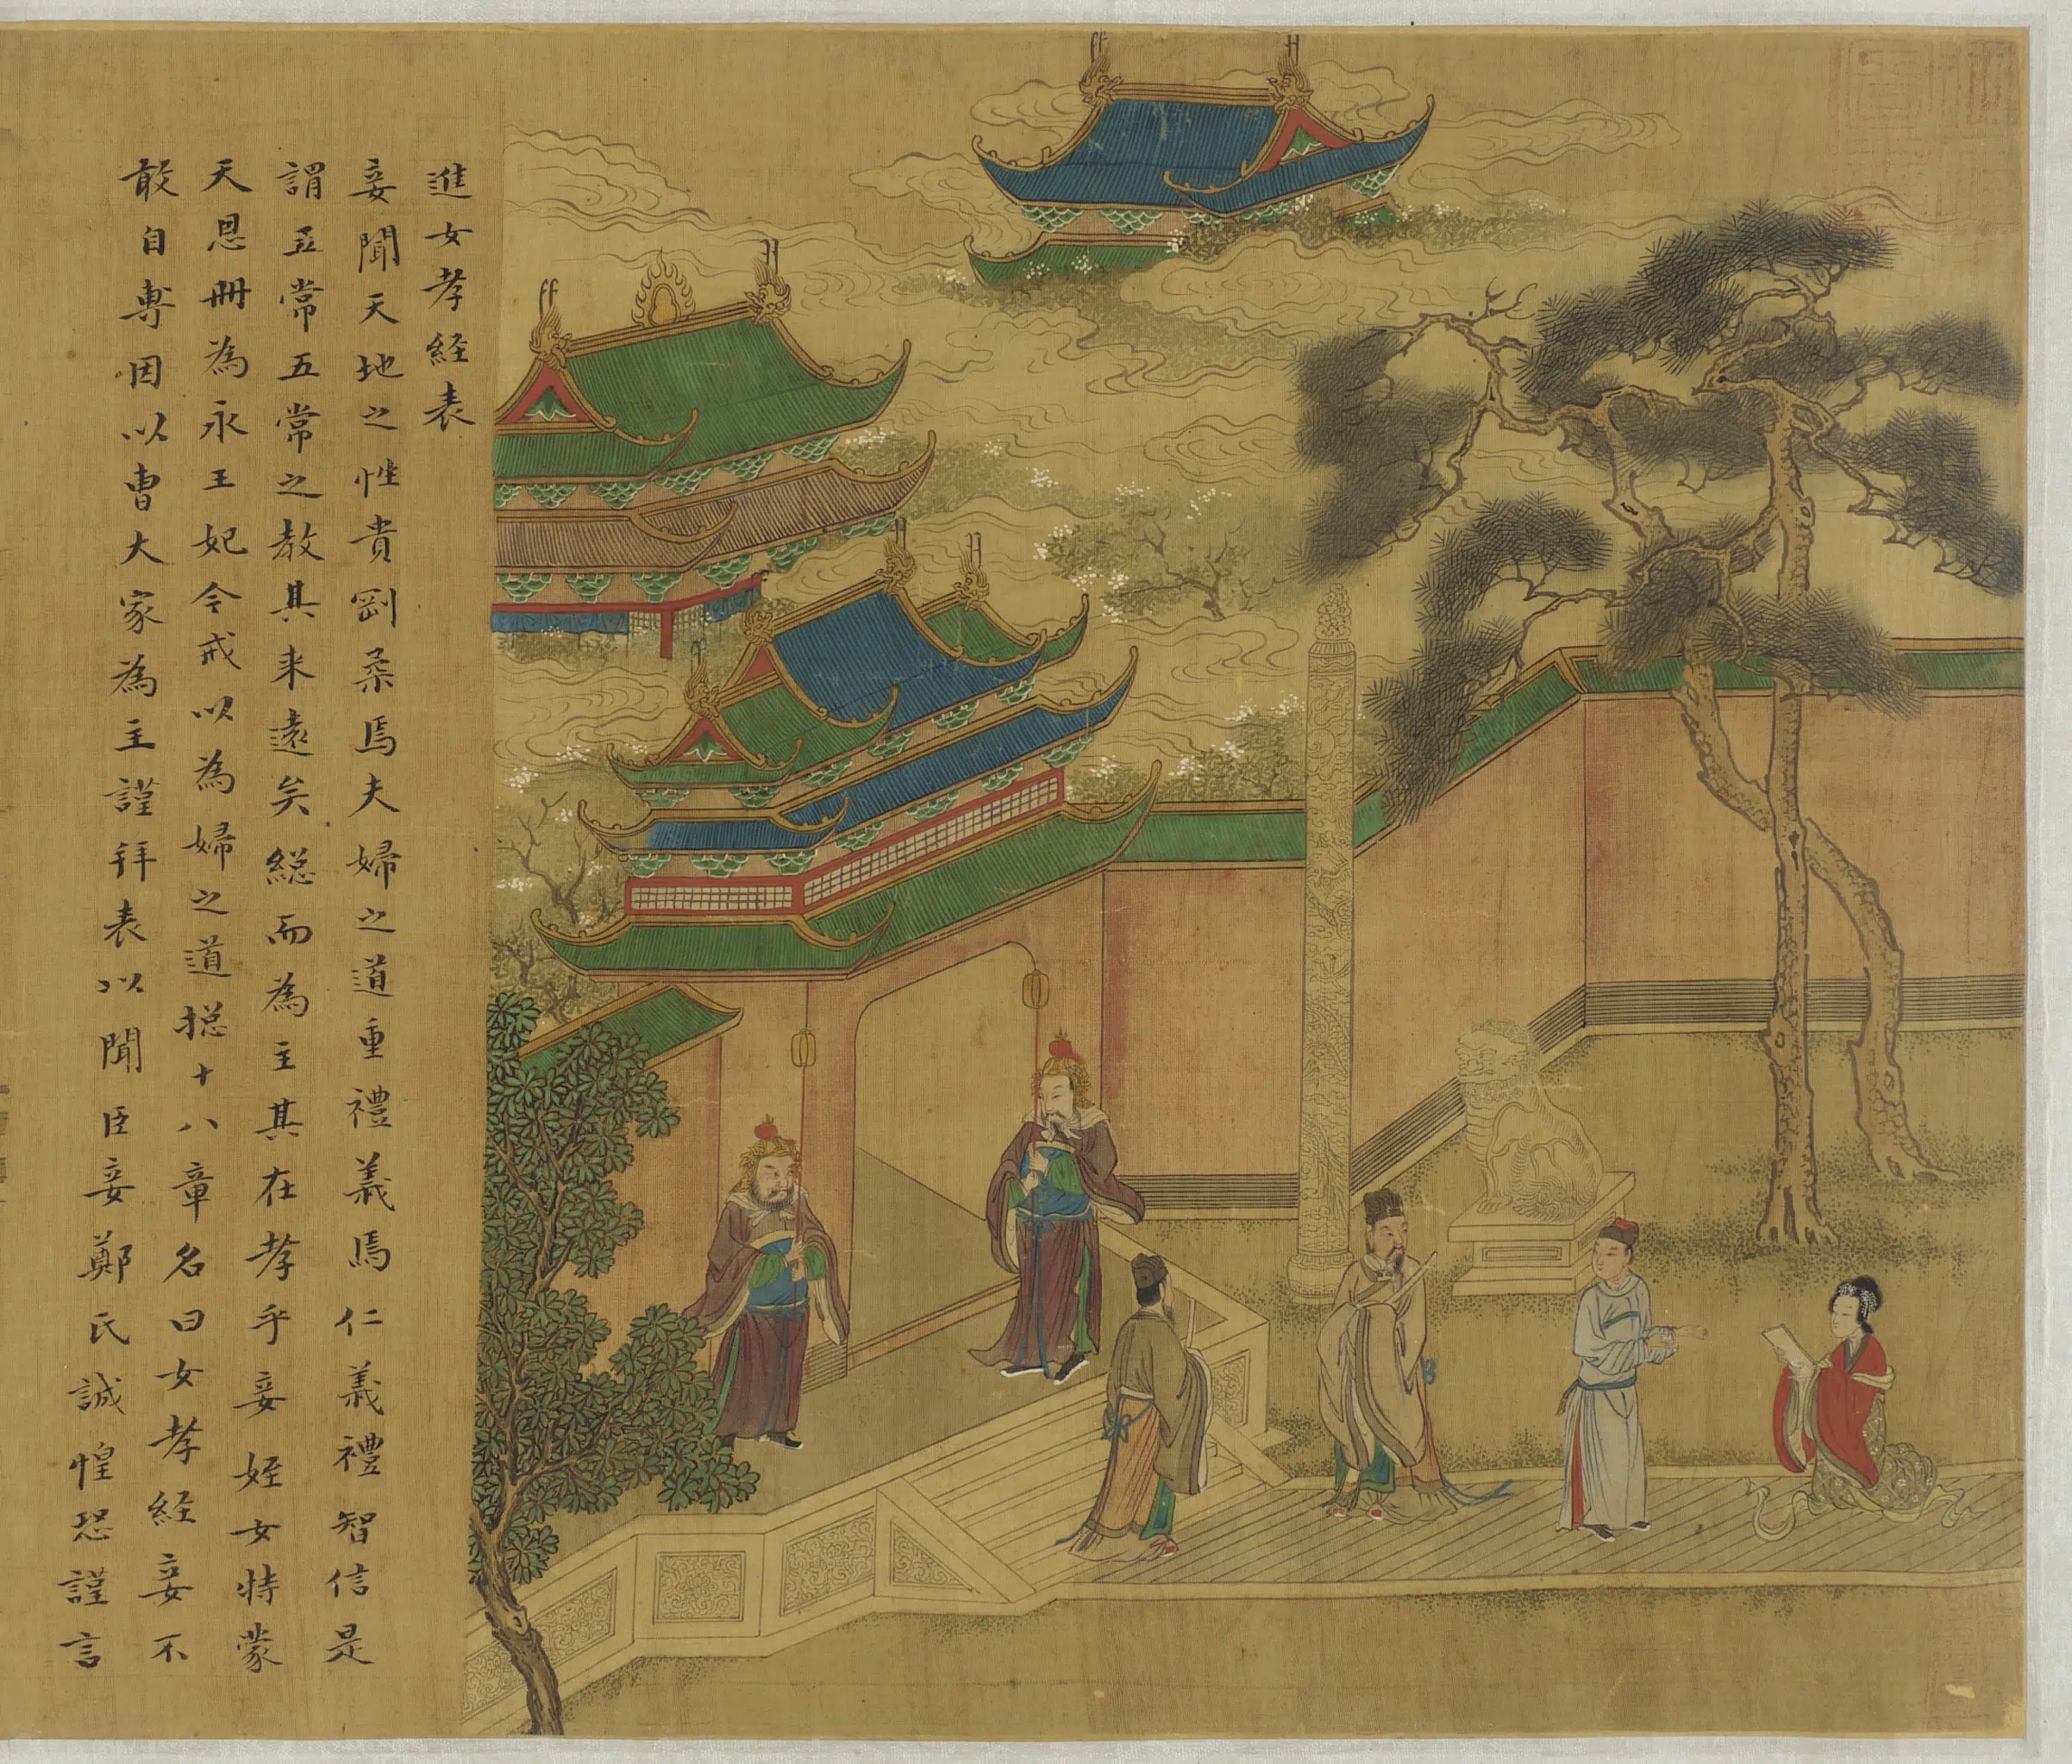 進女孝経表
妾聞天地之性貴剛柔焉夫婦之道重禮義焉仁義禮智信是
謂五常五常之教其来遠矣総而為主其在孝乎妾姪女特蒙
天恩冊為永王妃令戒以為婦之道捴十八章名曰女孝経妾不
敢自専因以曺大家為主謹拜表以聞臣妾鄭氏誠惶恐謹言